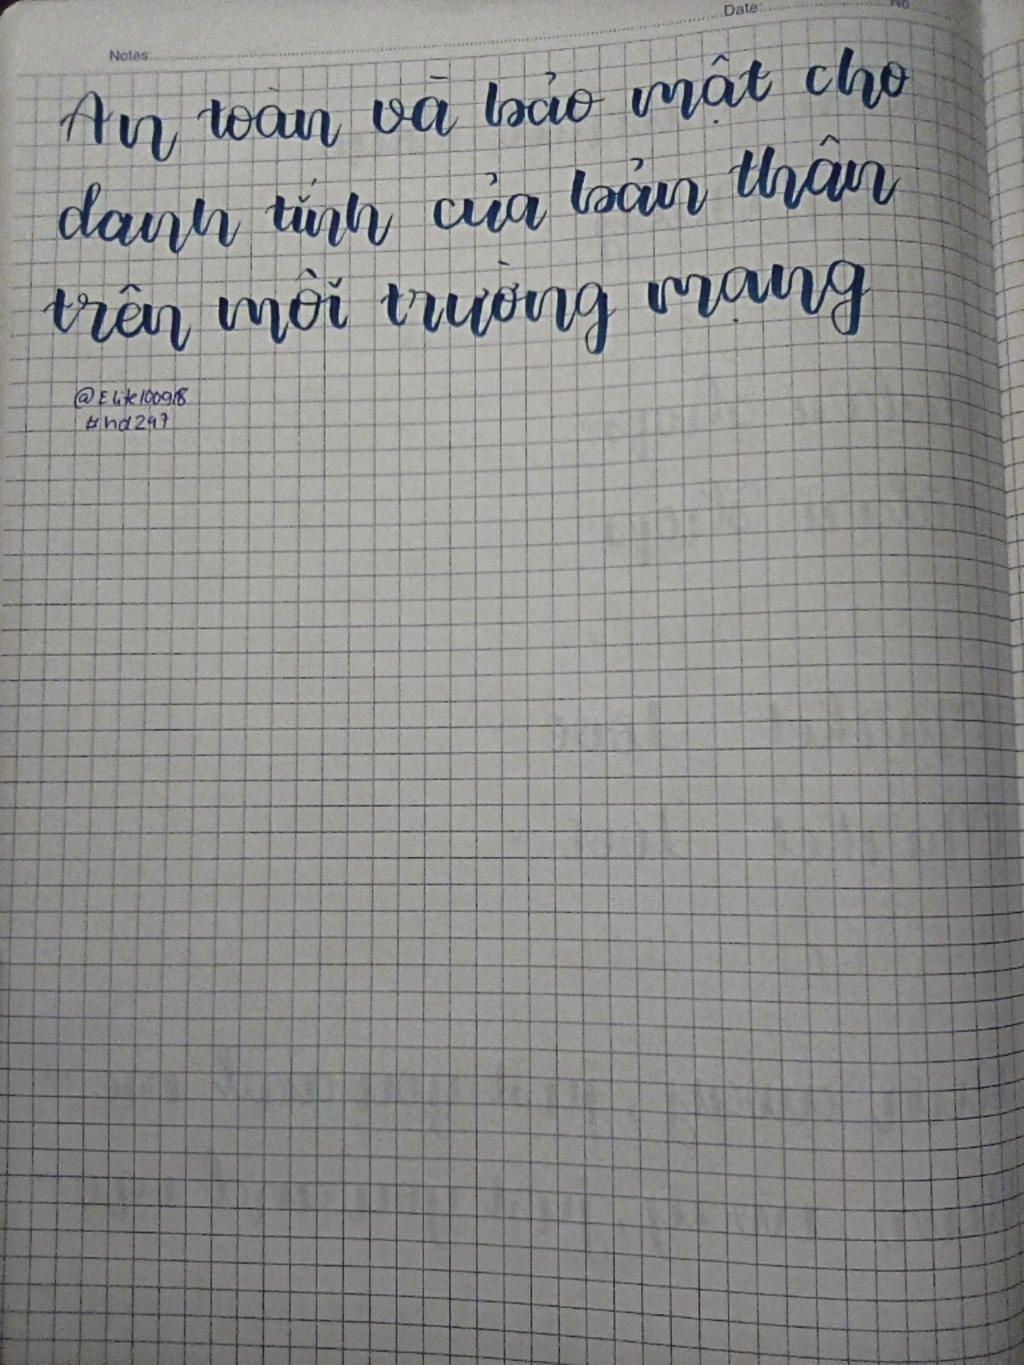 Date: No
Notes:
An toàn và bảo mật cho
danh tính của bản thân
trên môi trường mạng
#hd247